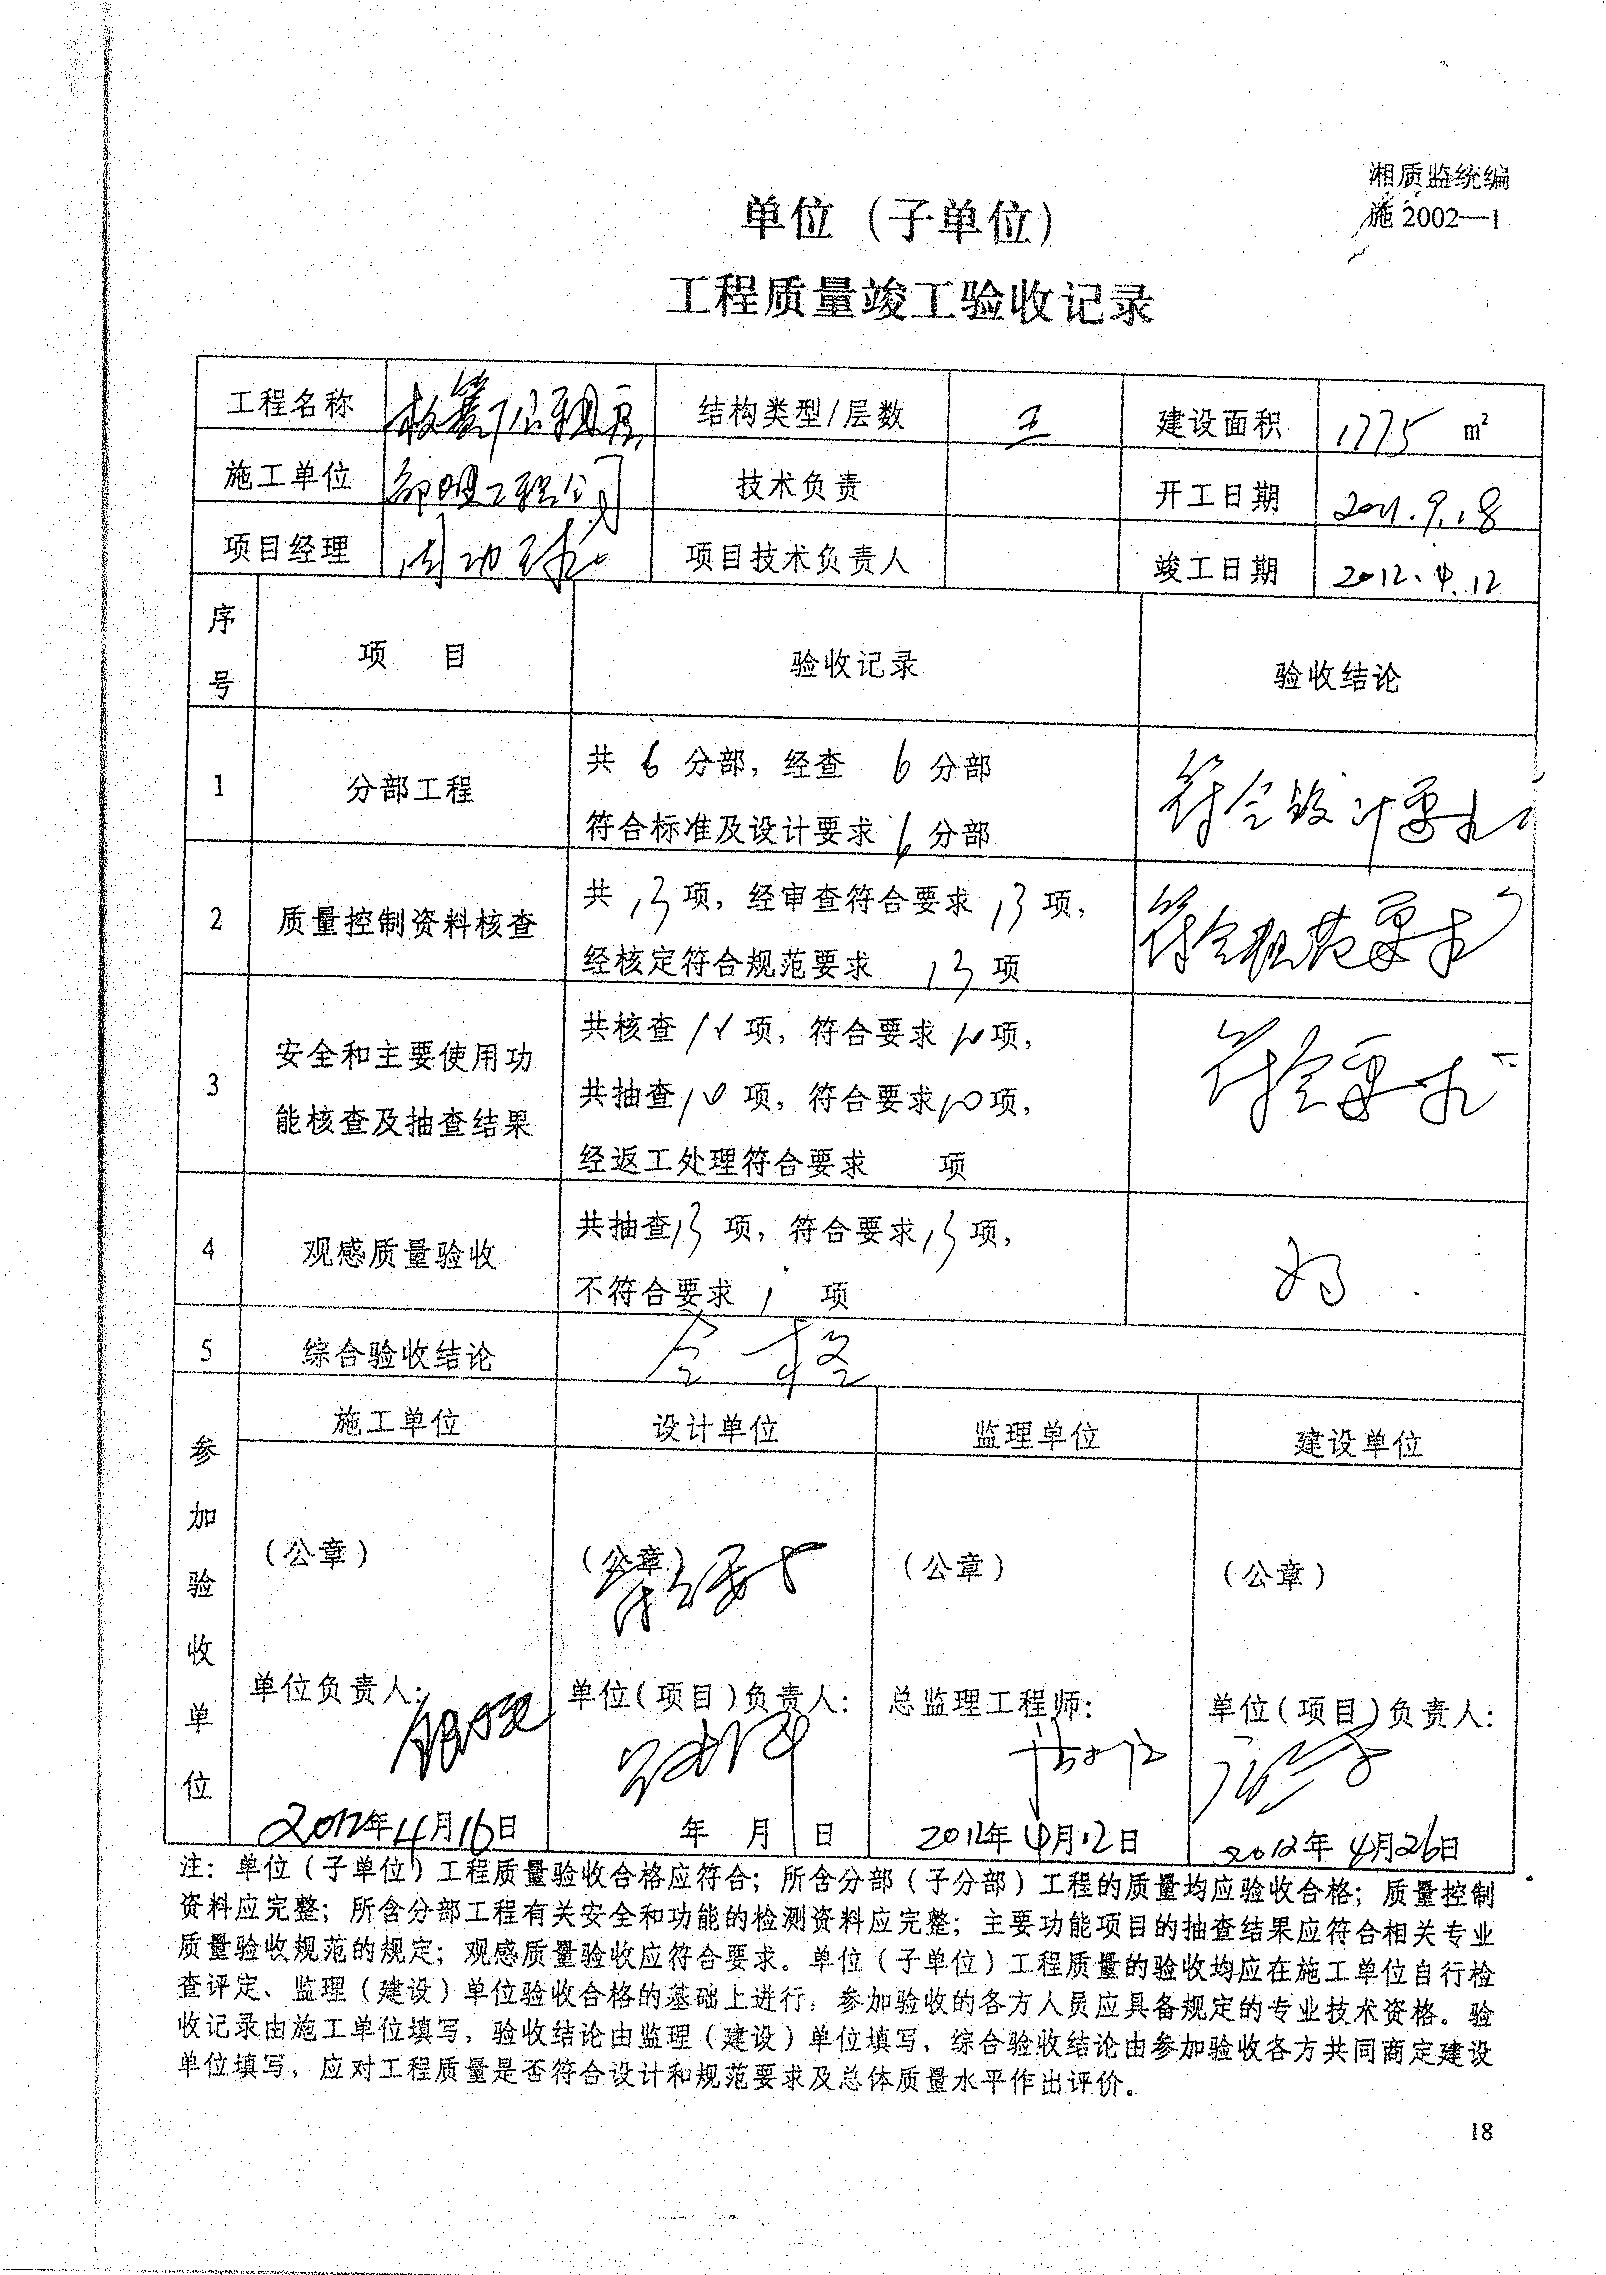 湘质监统编
施 2002—1
单位（子单位）
工程质量竣工验收记录
工程名称 结构类型/层数 三 建设面积 1775 m²
施工单位 工程公司 技术负责 开工日期 2011.9.18
项目经理 项目技术负责人 竣工日期 2012.4.12
序号 项 目 验收记录 验收结论
1 分部工程 共 6 分部，经查 6 分部
符合标准及设计要求 6 分部 符合设计要求
2 质量控制资料核查 共 13 项，经审查符合要求 13 项，
经核定符合规范要求 13 项 符合规范要求
3 安全和主要使用功能核查及抽查结果 共核查 项，符合要求 10 项，
共抽查 10 项，符合要求 10 项，
经返工处理符合要求 项 符合要求
4 观感质量验收 共抽查 13 项，符合要求 13 项，
不符合要求 / 项 好
5 综合验收结论 合格
参加验收单位 施工单位 设计单位 监理单位 建设单位
（公章） （公章） （公章） （公章）
符合要求
单位负责人： 单位(项目)负责人： 总监理工程师： 单位(项目)负责人：
2012年4月16日 年 月 日 2012年4月12日 2012年4月26日
注：单位（子单位）工程质量验收合格应符合；所含分部（子分部）工程的质量均应验收合格；质量控制
资料应完整；所含分部工程有关安全和功能的检测资料应完整；主要功能项目的抽查结果应符合相关专业
质量验收规范的规定；观感质量验收应符合要求。单位（子单位）工程质量的验收均应在施工单位自行检
查评定、监理（建设）单位验收合格的基础上进行，参加验收的各方人员应具备规定的专业技术资格。验
收记录由施工单位填写，验收结论由监理（建设）单位填写，综合验收结论由参加验收各方共同商定建设
单位填写，应对工程质量是否符合设计和规范要求及总体质量水平作出评价。
18